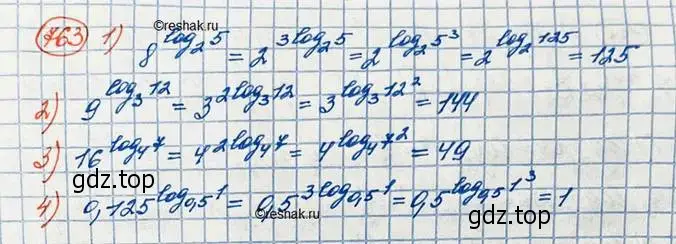 763 1) 8^{log_2 5} = 2^{3 log_2 5} = 2^{log_2 5^3} = 2^{log_2 125} = 125
©reshak.ru
2) 9^{log_3 12} = 3^{2 log_3 12} = 3^{log_3 12^2} = 144
3) 16^{log_4 7} = 4^{2 log_4 7} = 4^{log_4 7^2} = 49
gdz.top
4) 0,125^{log_{0,5} 1} = 0,5^{3 log_{0,5} 1} = 0,5^{log_{0,5} 1^3} = 1
©reshak.ru
gdz.top